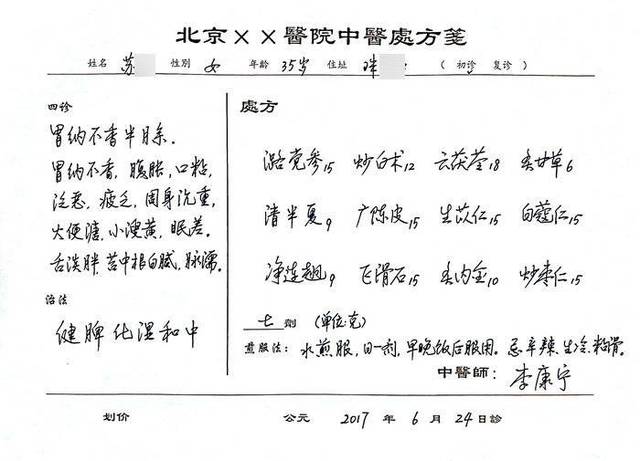 北京××醫院中醫處方箋
姓名 苏 性别 女 年龄 35岁 住址 (初诊 复诊)
四诊
胃纳不香半月余.
胃纳不香, 腹胀, 口粘,
泛恶, 疲乏, 周身沉重,
大便溏, 小溲黄, 眠差.
舌淡胖 苔中根白腻, 脉濡.
治法
健脾化湿和中
處方
潞党参15 炒白术12 云茯苓18 炙甘草6
清半夏9 广陈皮15 生苡仁15 白蔻仁15
净连翘9 飞滑石15 炙内金10 炒枣仁15
七 劑 (单位:克)
煎服法: 水煎服, 日一剂, 早晚饭后服用. 忌辛辣、生冷、粘滑.
中醫師: 李康宁
划价 公元 2017 年 6 月 24日診